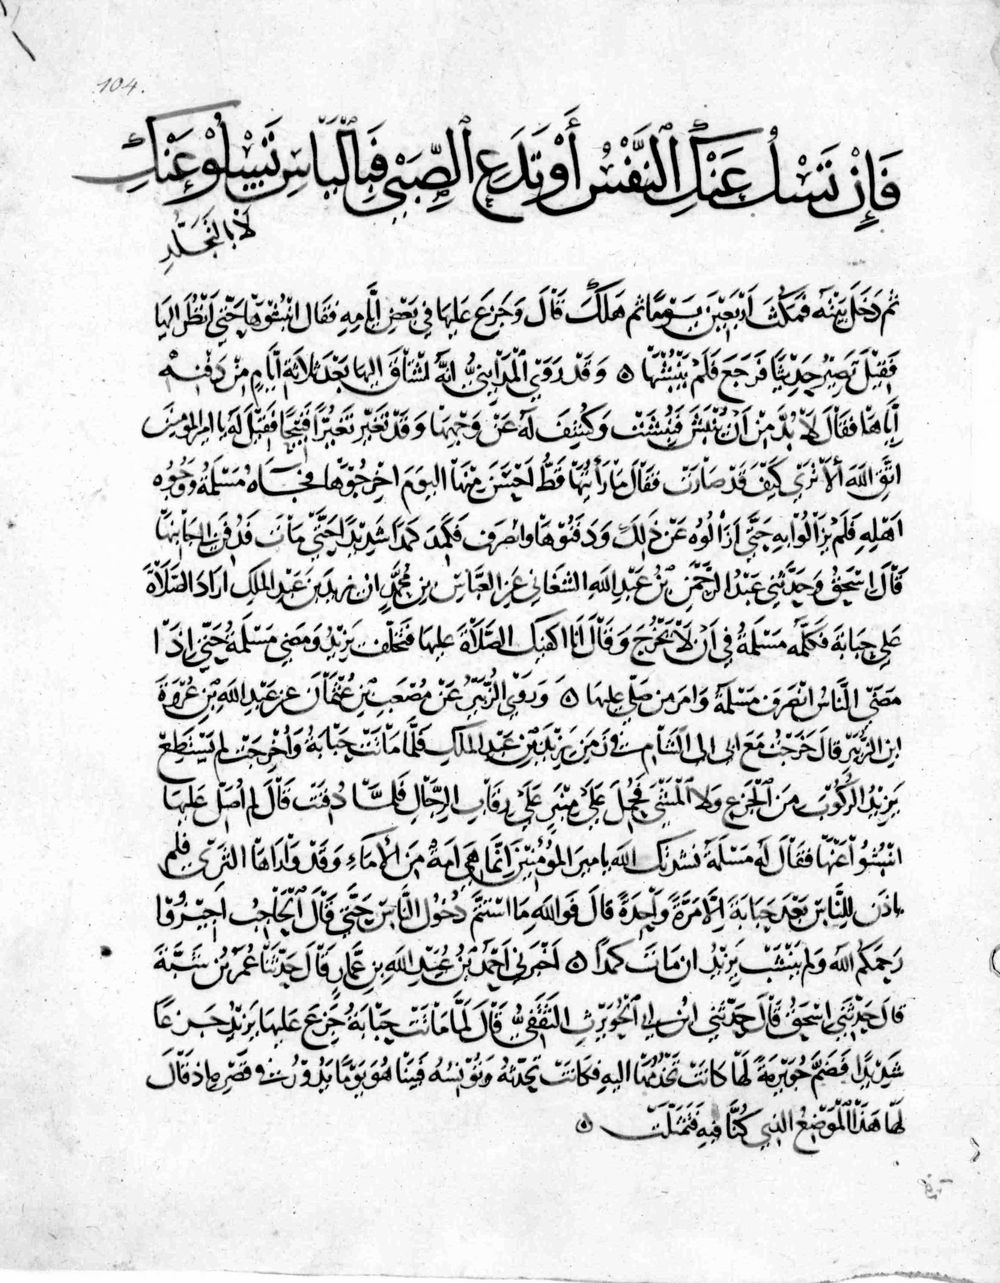 104.
فَإِنْ تَسْلُ عَنْكِ النَّفْسُ أَوْ تَدَعِ الصِّبَى فَبِالْيَأْسِ تَسْلُو عَنْكِ
لَا بِالتَّجَلُّدِ
ثم دَخَلَ بَيْتَهُ فَمَكَثَ أَرْبَعِينَ يَوْمًا ثم هَلَكَ قَالَ وَجَزِعَ عَلَيها في بَعْضِ أَيَّامِهِ فقال انْبُشُوهَا حَتَّى أَنْظُرَ إليها
فَقِيلَ تَصِيرُ حَدِيثًا فَرَجَعَ فَلَمْ يَنْبُشْهَا ٥ وَقَدْ رَوَى الْمَدَايِنِيُّ أَنَّهُ اشْتَاقَ اليها بَعْدَ ثلاثَةِ أَيَّامٍ مِنْ دَفْنِهِ
إِيَّاهَا فقال لَا بُدَّ مِنْ أَنْ تُنْبَشَ فَنُبِشَتْ وَكُشِفَ لَهُ عَنْ وَجْهِهَا وَقَدْ تَغَيَّرَ تَغَيُّرًا قَبِيحًا فَقِيلَ لَهُ يا امير المؤمنين
اتَّقِ اللهَ أَلَا تَرَى كَيْفَ قَدْ صَارَت فقال مَا رَأَيْتُهَا قَطُّ أَحْسَنَ مِنْهَا اليومَ اخْرِجُوهَا فجاءه مَسْلَمَةُ وَوُجُوهُ
اهْلِهِ فَلَمْ يَزَالُوا بِهِ حَتَّى أَزَالُوهُ عَنْ ذَلِكَ وَدَفَنُوهَا وانْصَرَفَ فَكَمِدَ كَمَدًا شَدِيدًا حَتَّى مَاتَ فَدُفِنَ الى جَانِبِهَا
قَالَ اسْحَقُ وَحَدَّثَنِي عَبْدُ الرَّحْمَنِ بْنُ عَبْدِ اللهِ الشغافي عَنِ العَبَّاسِ بنِ مُحَمَّدٍ ان يزيد بن عَبْدِ الملكِ ارادَ الصَّلَاةَ
عَلى حَبَابَةَ فَكَلَّمَهُ مَسْلَمَةُ في أَنْ لَا يَخْرُجَ وَقَالَ أَنَا اكفيكَ الصَّلَاةَ عليها فَتَخَلَّفَ يَزِيدُ وَمَضَى مَسْلَمَةُ حَتَّى إِذَا
مَضَى النَّاسُ انْصَرَفَ مَسْلَمَةُ وَامَرَ من صَلَّى عليها ٥ وَرَوَى الزُّبَيْرُ عَنْ مُصْعَبِ بْنِ عُثْمَانَ عن عَبْدِ اللهِ بْنِ عُرْوَةَ
ابن الزُّبَيْرِ قالَ خَرَجْتُ مَعَ ابى الى الشَّامِ في زَمَنِ يَزِيدَ بْنِ عَبْدِ الملكِ فَلَمَّا مَاتَتْ حَبَابَةُ وَأُخْرِجَتْ لم يَسْتَطِعْ
يَزِيدُ الرُّكُوبَ مِنَ الْجَزَعِ وَلَا الْمَشْيَ فَحُمِلَ عَلَى مِنْبَرٍ عَلَى رِقَابِ الرِّجَالِ فَلَمَّا دُفِنَتْ قَالَ لم أُصَلِّ عَلَيها
انْبُشُوا عَنْهَا فَقَالَ لَهُ مَسْلَمَةُ نَشَدْتُكَ اللهَ يا امير المؤمنين إِنَّمَا هِيَ أَمَةٌ مِنَ الْإِمَاءِ وَقَدْ وَارَاهَا الثَّرَى فلم
ياذَنْ لِلنَّاسِ بَعْدَ حَبَابَةَ إِلَّا مَرَّةً وَاحِدَةً قالَ فَوَاللهِ مَا اسْتَتَمَّ دُخُولَ النَّاسِ حَتَّى قَالَ الْحَاجِبُ أَجِيزُوا
رَحِمَكُمُ اللهُ وَلم يَنْشَبْ يَزِيدُ ان مَاتَ كَمَدًا ٥ أَخْبَرَنِي أَحْمَدُ بْنُ عُبَيْدِ اللهِ بن عَمَّارٍ قَالَ حَدَّثَنَا عُمَرُ بْنُ شَبَّةَ
قال حَدَّثَنِي اسْحَقُ قَالَ حَدَّثَنِي ابنُ ابي الْحُوَيْرِثِ الثَّقَفِيُّ قَالَ لَمَّا مَاتَتْ حَبَابَةُ جَزِعَ عَلَيها يَزِيدُ جَزَعًا
شَدِيدًا فَضَمَّ جُوَيْرِيَةً لَهَا كَانَتْ تَخْدُمُهَا اليهِ فكَانَتْ تُحَدِّثُهُ وَتُؤْنِسُهُ فَبَيْنَا هُوَ يَوْمًا يَدُورُ في قَصْرِهِ اذ قَالَ
لَهَا هَذَا الْمَوْضِعُ الذي كُنَّا فيه فَتَمَثَّلَتْ ٥